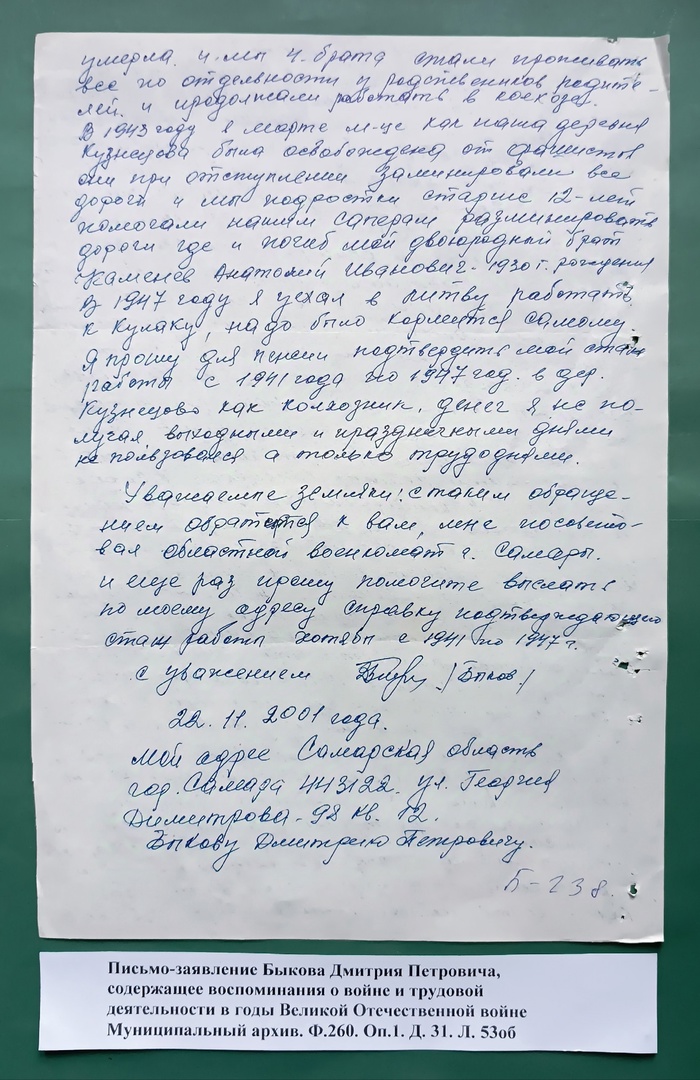 умерла. и мы 4. брата стали проживать
все по отдельности у родственников родите-
лей. и продолжали работать в колхозе.
В 1943 году в марте м-це как наша деревня
Кузнецова была освобождена от фашистов
они при отступлении заминировали все
дороги и мы подростки старше 12-лет
помогали нашим саперам разминировать
дороги где и погиб мой двоюродный брат
Каменев Анатолий Иванович - 1930 г. рождения
В 1947 году я уехал в Литву работать
к кулаку, надо было кормится самому.
Я прошу для пенсии подтвердить мой стаж
работы с 1941 года по 1947 год. в дер.
Кузнецово как колхозник. денег я не по-
лучал, выходными и праздничными днями
не пользовался а только трудоднями.
Уважаемые земляки! с таким обраще-
нием обратится к вам, мне посовето-
вал областной военкомат г. Самары.
и еще раз прошу помогите выслать
по моему адресу справку подтверждающию
стаж работы хотябы с 1941 по 1947 г.
с уважением /Быков/
22. 11. 2001 года.
Мой адрес Самарская область
гор. Самара 443122. ул. Георгия
Димитрова - 98 кв. 12.
Быкову Дмитрию Петровичу.
Б-238.
Письмо-заявление Быкова Дмитрия Петровича,
содержащее воспоминания о войне и трудовой
деятельности в годы Великой Отечественной войне
Муниципальный архив. Ф.260. Оп.1. Д. 31. Л. 53об